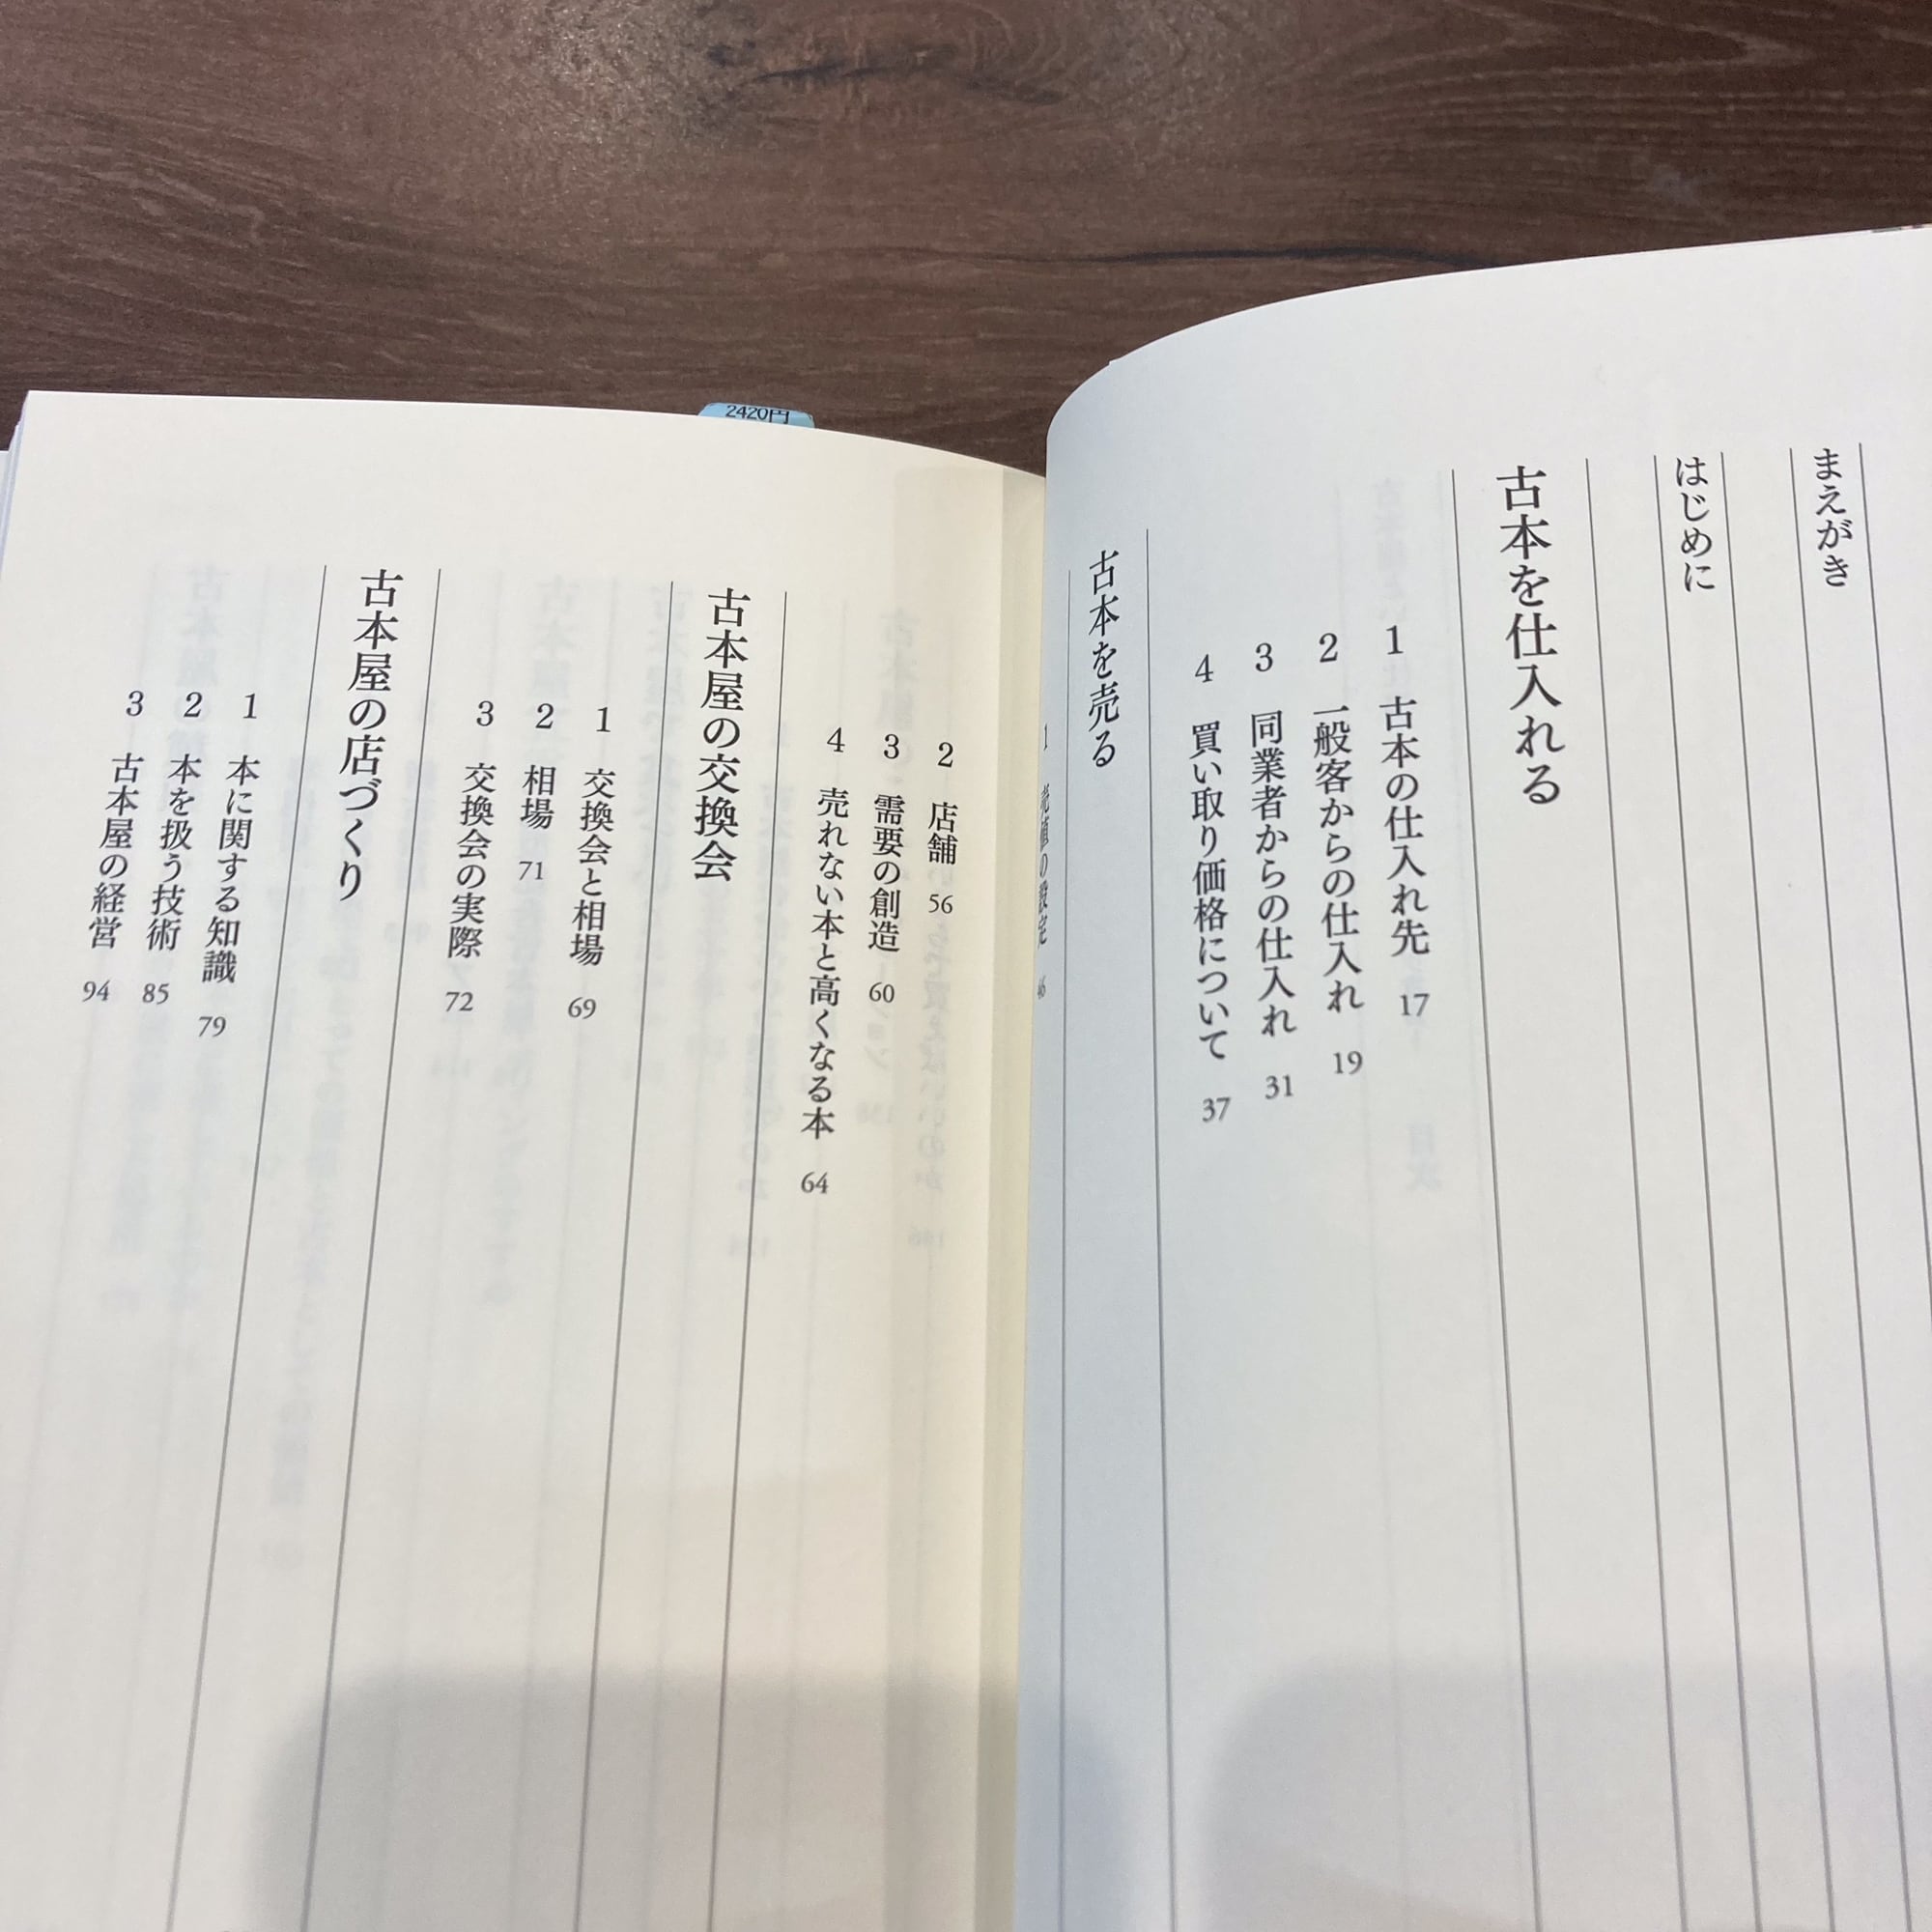 まえがき
はじめに
古本を仕入れる
1 古本の仕入れ先 17
2 一般客からの仕入れ 19
3 同業者からの仕入れ 31
4 買い取り価格について 37
古本を売る
1 売値の設定 46
2 店舗 56
3 需要の創造 60
4 売れない本と高くなる本 64
古本屋の交換会
1 交換会と相場 69
2 相場 71
3 交換会の実際 72
古本屋の店づくり
1 本に関する知識 79
2 本を扱う技術 85
3 古本屋の経営 94
2420円